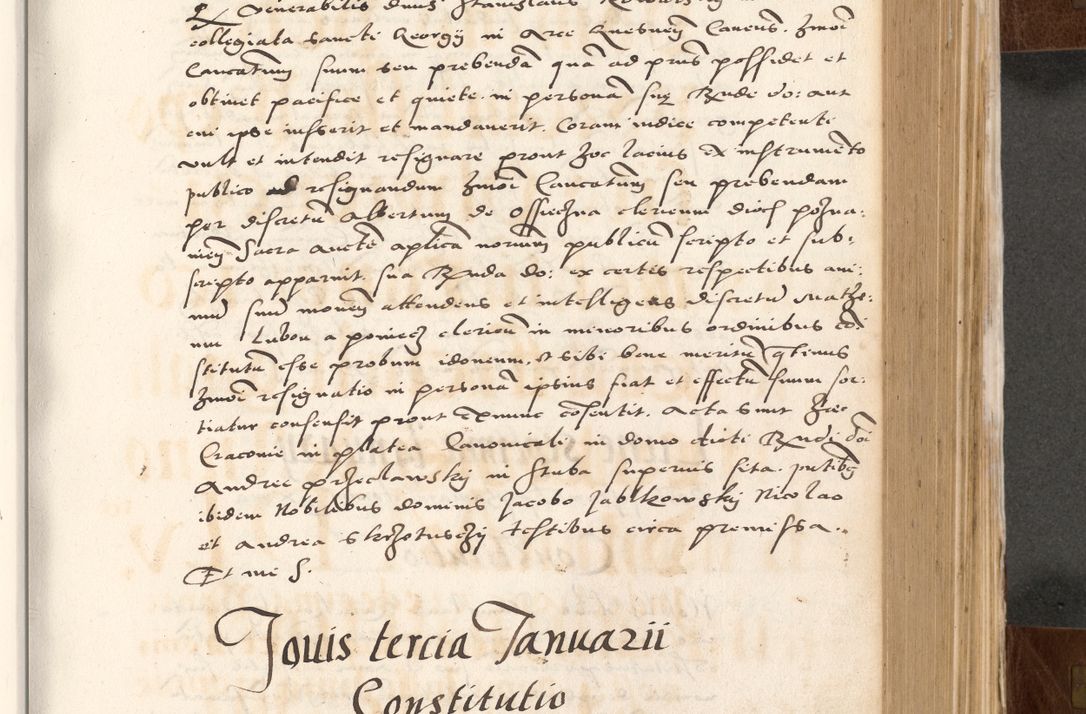 Venerabilis dnus Stanislaus
collegiata sancti Georgii in Arce Gnesnen Cancus. Zmoi
Cancatum suum seu prebendā quā ad pns possidet et
obtinet pacifice et quiete. in personā suę Rnde do: aut
cui ipse insserit et mandauerit. Coram iudice competente
vult et intendit resignare prout hoc lacius ex instrumēto
publico ad resignandum hmoi Cancatum seu prebendam
per discretū Albertum de Ossieczna clericum dioc pozna:
nien Sacra aucte aplica notarium publicū scripto et sub:
scripto apparuit. sua Rnda do: ex certis respectibus ani:
mū suū mouen attendens et intelligens discretū Mathe:
um Lubon a poniecz clericū in minoribus ordinibus cō:
stitutū esse probum idoneum. et sibi bene meritū qtenus
hmoi resignatio in personā ipsius fiat et effectū suum sor:
tiatur consensit prout exnunc cōsentit. Acta sunt hec
Cracouie in platea Canonicali in domo dicti Rndi dni
Andree przeclawskij in stuba superius sita. pntibus
ibidem Nobilibus dominis Jacobo Jablkowskij Nicolao
et Andrea Skrzotuschij testibus circa premissa..
Et me S.
Jouis tercia Januarii
Constitutio